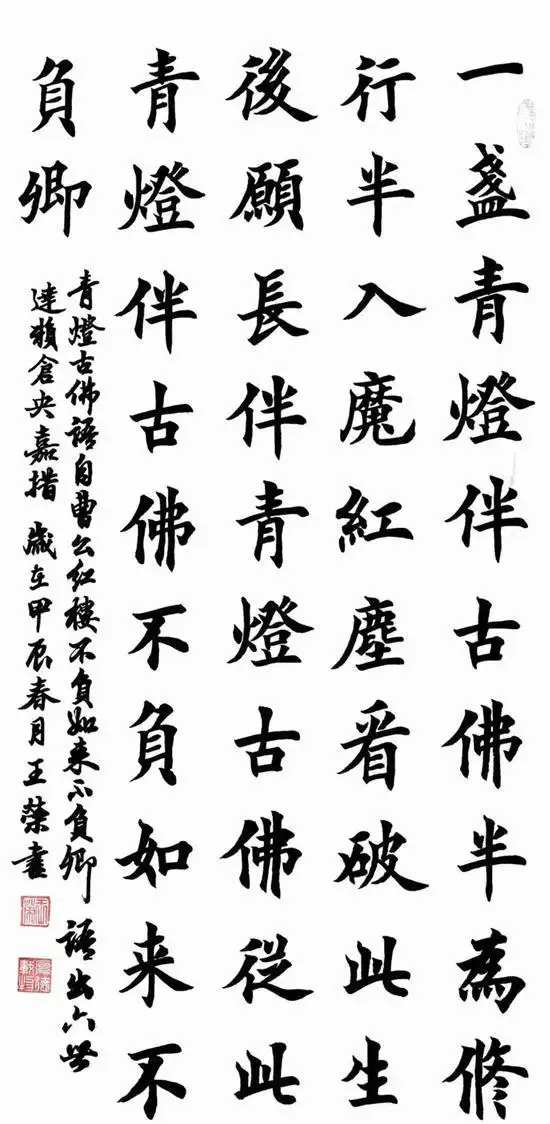 一盏青燈伴古佛半為修
行半入魔紅塵看破此生
後願長伴青燈古佛從此
青燈伴古佛不負如来不
負卿
青燈古佛語自曹公红樓不負如来不負卿 語出六世
達赖倉央嘉措 歲在甲辰春月王榮書